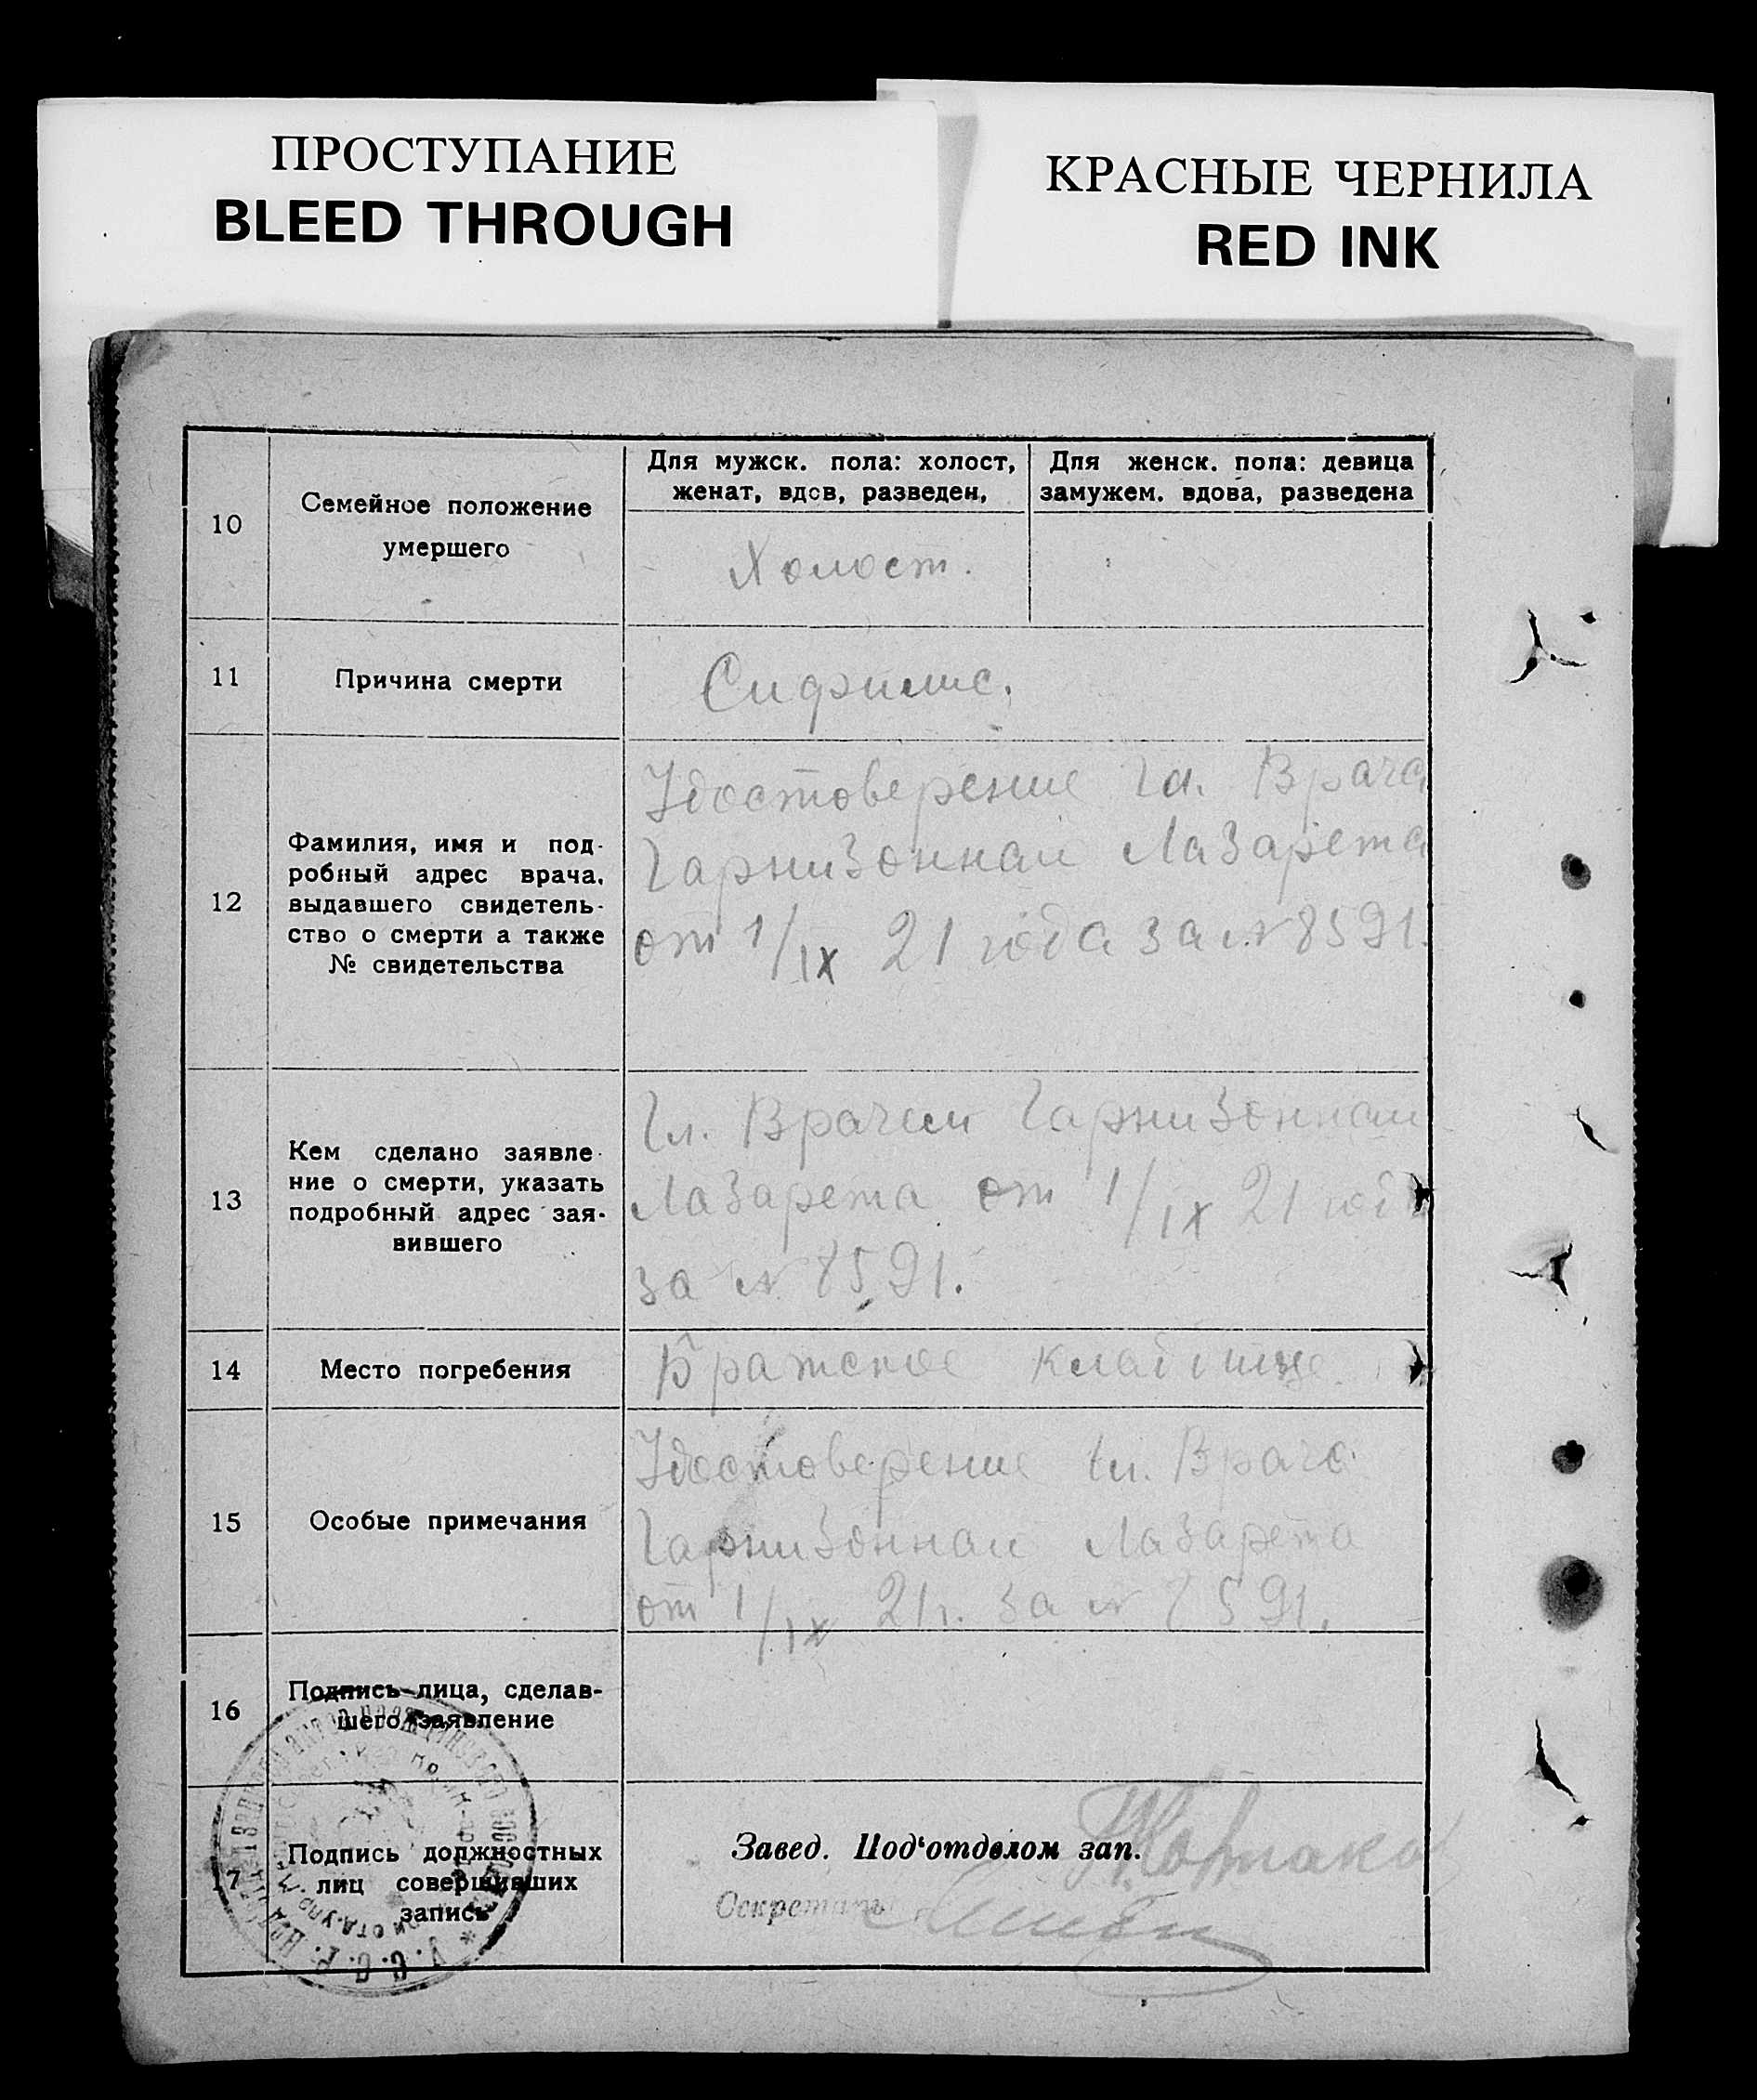 ПРОСТУПАНИЕ
BLEED THROUGH
КРАСНЫЕ ЧЕРНИЛА
RED INK
10
Семейное положение
умершего
Для мужск. пола: холост,
женат, вдов, разведен,
Для женск. пола: девица
замужем. вдова, разведена
Холост.
11
Причина смерти
Сифилис.
12
Фамилия, имя и под-
робный адрес врача,
выдавшего свидетель-
ство о смерти а также
№ свидетельства
Удостоверение Гл. Врача
Гарнизоннаи Лазарета
от 1/IX 21 года за № 8591.
13
Кем сделано заявле-
ние о смерти, указать
подробный адрес зая-
вившего
Гл. Врачем Гарнизоннаи
Лазарета от 1/IX 21 года
за № 8591.
14
Место погребения
Братское кладбище.
15
Особые примечания
Удостоверение Гл. Врача
Гарнизоннаи Лазарета
от 1/IX 21 г. за № 8591.
16
Подпись лица, сделав-
шего заявление
17
Подпись должностных
лиц совершивших
запись
Завед. Под'отделом зап.
Секретарь
У.С.С.Р.